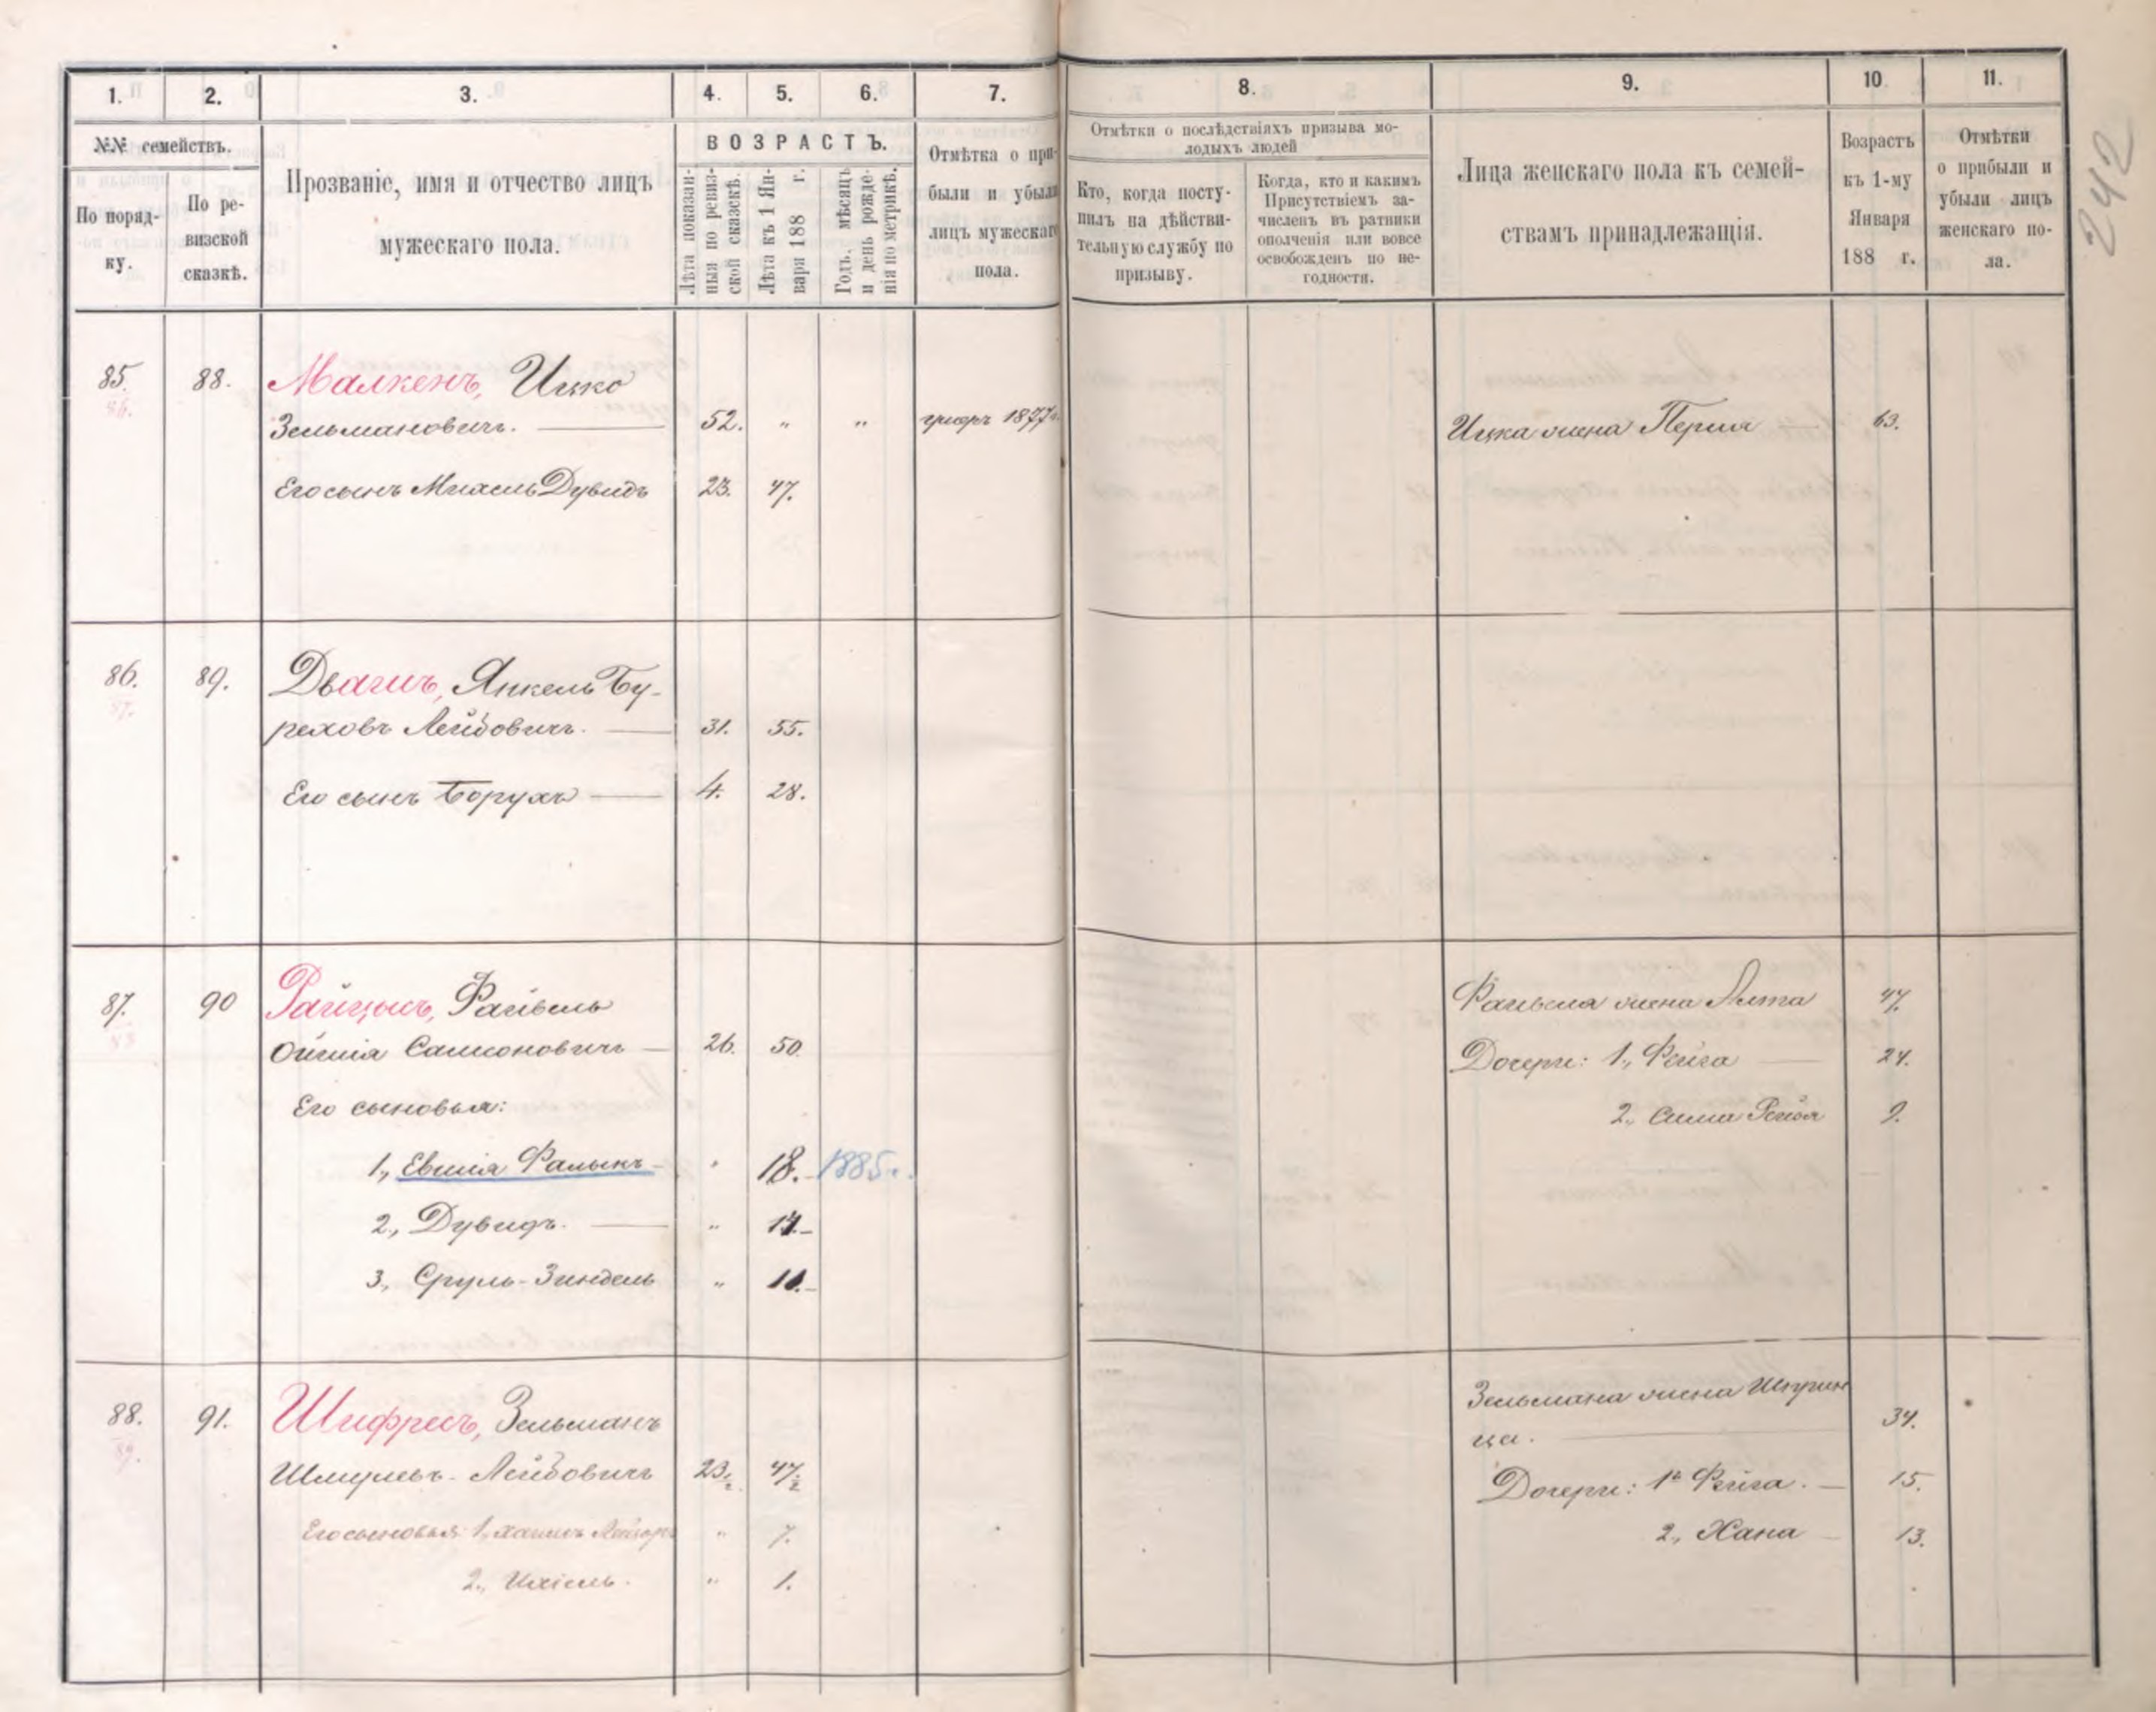 1. 2. 3. 4. 5. 6. 7. 8. 9. 10 11.
№№ семействъ.
По поряд-
ку.
По ре-
визской
сказкѣ.
Прозваніе, имя и отчество лицъ
мужескаго пола.
ВОЗРАСТЪ.
Лѣта показан-
ныя по ревиз-
ской сказкѣ.
Лѣта къ 1 Ян-
варя 188 г.
Годъ, мѣсяцъ
и день рожде-
нія по метрикѣ.
Отмѣтка о при-
были и убыли
лицъ мужескаго
пола.
Отмѣтки о послѣдствіяхъ призыва мо-
лодыхъ людей
Кто, когда посту-
пилъ на дѣйстви-
тельную службу по
призыву.
Когда, кто и какимъ
Присутствіемъ за-
численъ въ ратники
ополченія или вовсе
освобожденъ по не-
годности.
Лица женскаго пола къ семей-
ствамъ принадлежащія.
Возрастъ
къ 1-му
Января
188 г.
Отмѣтки
о прибыли и
убыли лицъ
женскаго по-
ла.
242
85. 88. Малкенъ, Ицко
86.
Зельмановичъ. 52. " " умеръ 1877 г. Ицка жена Перла 63.
Его сынъ Дувидъ 23. 47.
86. 89. Двагинъ, Янкель Бу-
87.
реховъ Лейбовичъ. 31. 55.
Его сынъ Борухъ 4. 28.
87. 90 Райцынъ, Файвель Файвеля жена Алта 47.
88
Самсоновичъ 26. 50. Дочери: 1., Фейга 24.
Его сыновья: 2., Сима Рейзя 9.
1., Евшія Фалькъ " 18. 1885 г.
2., Дувидъ. " 14.
3., Сруль-Зиндель " 11.
88. 91. Шифресъ, Зельманъ Зельмана жена Шприн
89.
ца. 34.
Шмулевъ-Лейбовичъ 23½. 47½ Дочери: 1я Фейга. 15.
Его сыновья 1., Хаимъ " 7. 2., Хана 13.
2., Ихіель. " 1.